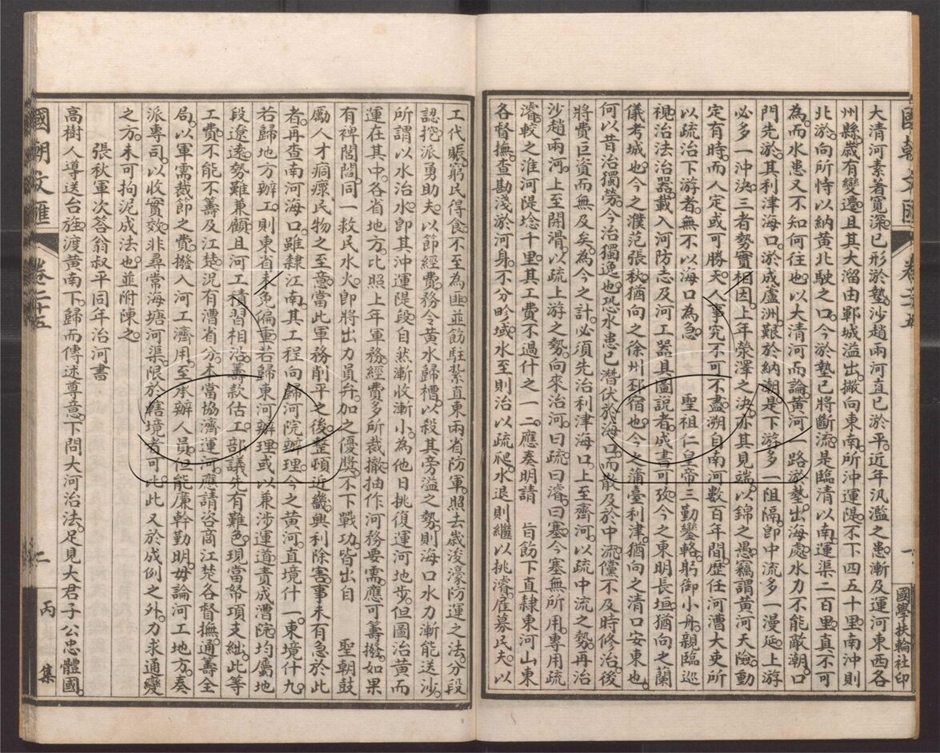 大清河素着寬深已形於墊沙趙兩河直已於平近年汎濫之患漸及運河東西各
州縣歲有變遷且其大溜由鄆城溢出撇向東南所沖運隄不下四五十里南沖則
北於向所恃以納黃北駛之口今於墊已將斷流是臨清以南運渠二百里真不可
為而水患又不知何往也以大清河而論黃河一路於墊出海處水力不能敵潮口
門先於其利津海口於成蘆洲艱於納潮是下游多一阻隔卽中流多一漫延上游
必多一沖決三者勢實相因上年滎澤之決亦其見端以錦之愚竊謂黃河天險動
定有時而人定或可勝天人事究不可不盡溯自南河數百年間歷任河漕大吏所
以疏治下游者無不以海口為急 聖祖仁皇帝三勤鑾輅躬御小舟親臨巡
視治法治器載入河防志及河工器具圖說者成書可攷今之東明長垣猶向之蘭
儀考城也今之濮范張秋猶向之徐州邳宿也今之蒲臺利津猶向之清口安東也
何以昔治獨勞今治獨逸也恐水患已潛伏於海口而散及於中流儻不及時修治後
將費巨資而無及矣為今之計必須先治利津海口上至齊河以疏中流之勢再治
沙趙兩河上至開濬以疏上游之勢向來治河曰疏曰濬曰塞今塞無所用專用疏
濬較之淮河隄埝千里其工費不過什之一二應奏明請 旨飭下直隸東河山東
各督撫查勘淺於河身不分畛域水至則治以疏爬水退則繼以挑濬雇募民夫以
國朝文匯
卷二十五
一
國學扶輪社印
工代賑窮民得食不至為匪並飭駐紮直東兩省防軍照去歲浚濠防運之法分段
認挖派勇助夫以節經費務令黃水歸槽以殺其旁溢之勢則海口水力漸能送沙
所謂以水治水卽其沖運隄段自然漸收漸小為他日挑復運河地步但圖治黃而
運在其中各省地方比照上年軍務經費多所裁撤抽作河務要需應可籌撥如果
有裨閭閻同一救民水火卽將出力員弁加之優獎不下戰功皆出自 聖朝鼓
勵人才痌瘝民物之至意當此軍務削平之後整頓近畿興利除害事未有急於此
者再查南河海口雖隸江南其工程向歸河院辦理今之黃河直境什一東境什九
若歸地方辦工則東省未免偏重若歸東河辦理或以兼涉運道責成漕院均屬地
段遼遠勢難兼顧且河工積習相沿籌款估工部議先有難色現當帑項支絀此等
工費不能不籌及江楚況有漕省分本當協濟運河應請咨商江楚各督撫通籌全
局以軍需裁節之費撥入河工濟用至承辦人員但能廉幹勤明毋論河工地方奏
派專司以收實效非尋常海塘河渠限於轄境者可比此又於成例之外力求通變
之方未可拘泥成法也並附陳之
張秋軍次答翁叔平同年治河書
高樹人導送台旌渡黃南下歸而傳述尊意下問大河治法足見大君子公忠體國
國朝文匯
卷二十五
二
丙集